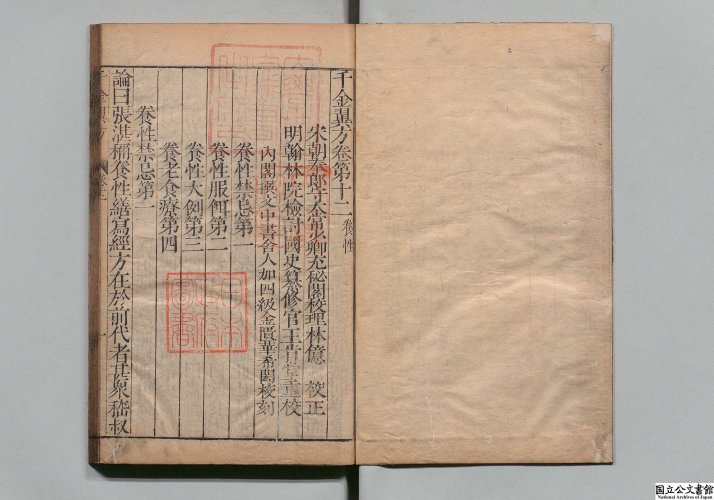 千金翼方卷第十二 養性
宋朝奉郎守太常少卿充秘閣校理林億 校正
明翰林院檢討國史纂修官王肯堂重校
內閣撰文中書舍人加四級金匱華希閎校刻
養性禁忌第一
養性服餌第二
養性大例第三
養老食療第四
養性禁忌第一
論曰張湛稱養性繕寫經方在於前代者甚衆嵇叔
千金翼方
日本
政府
圖書
国立公文書館
National Archives of Japan